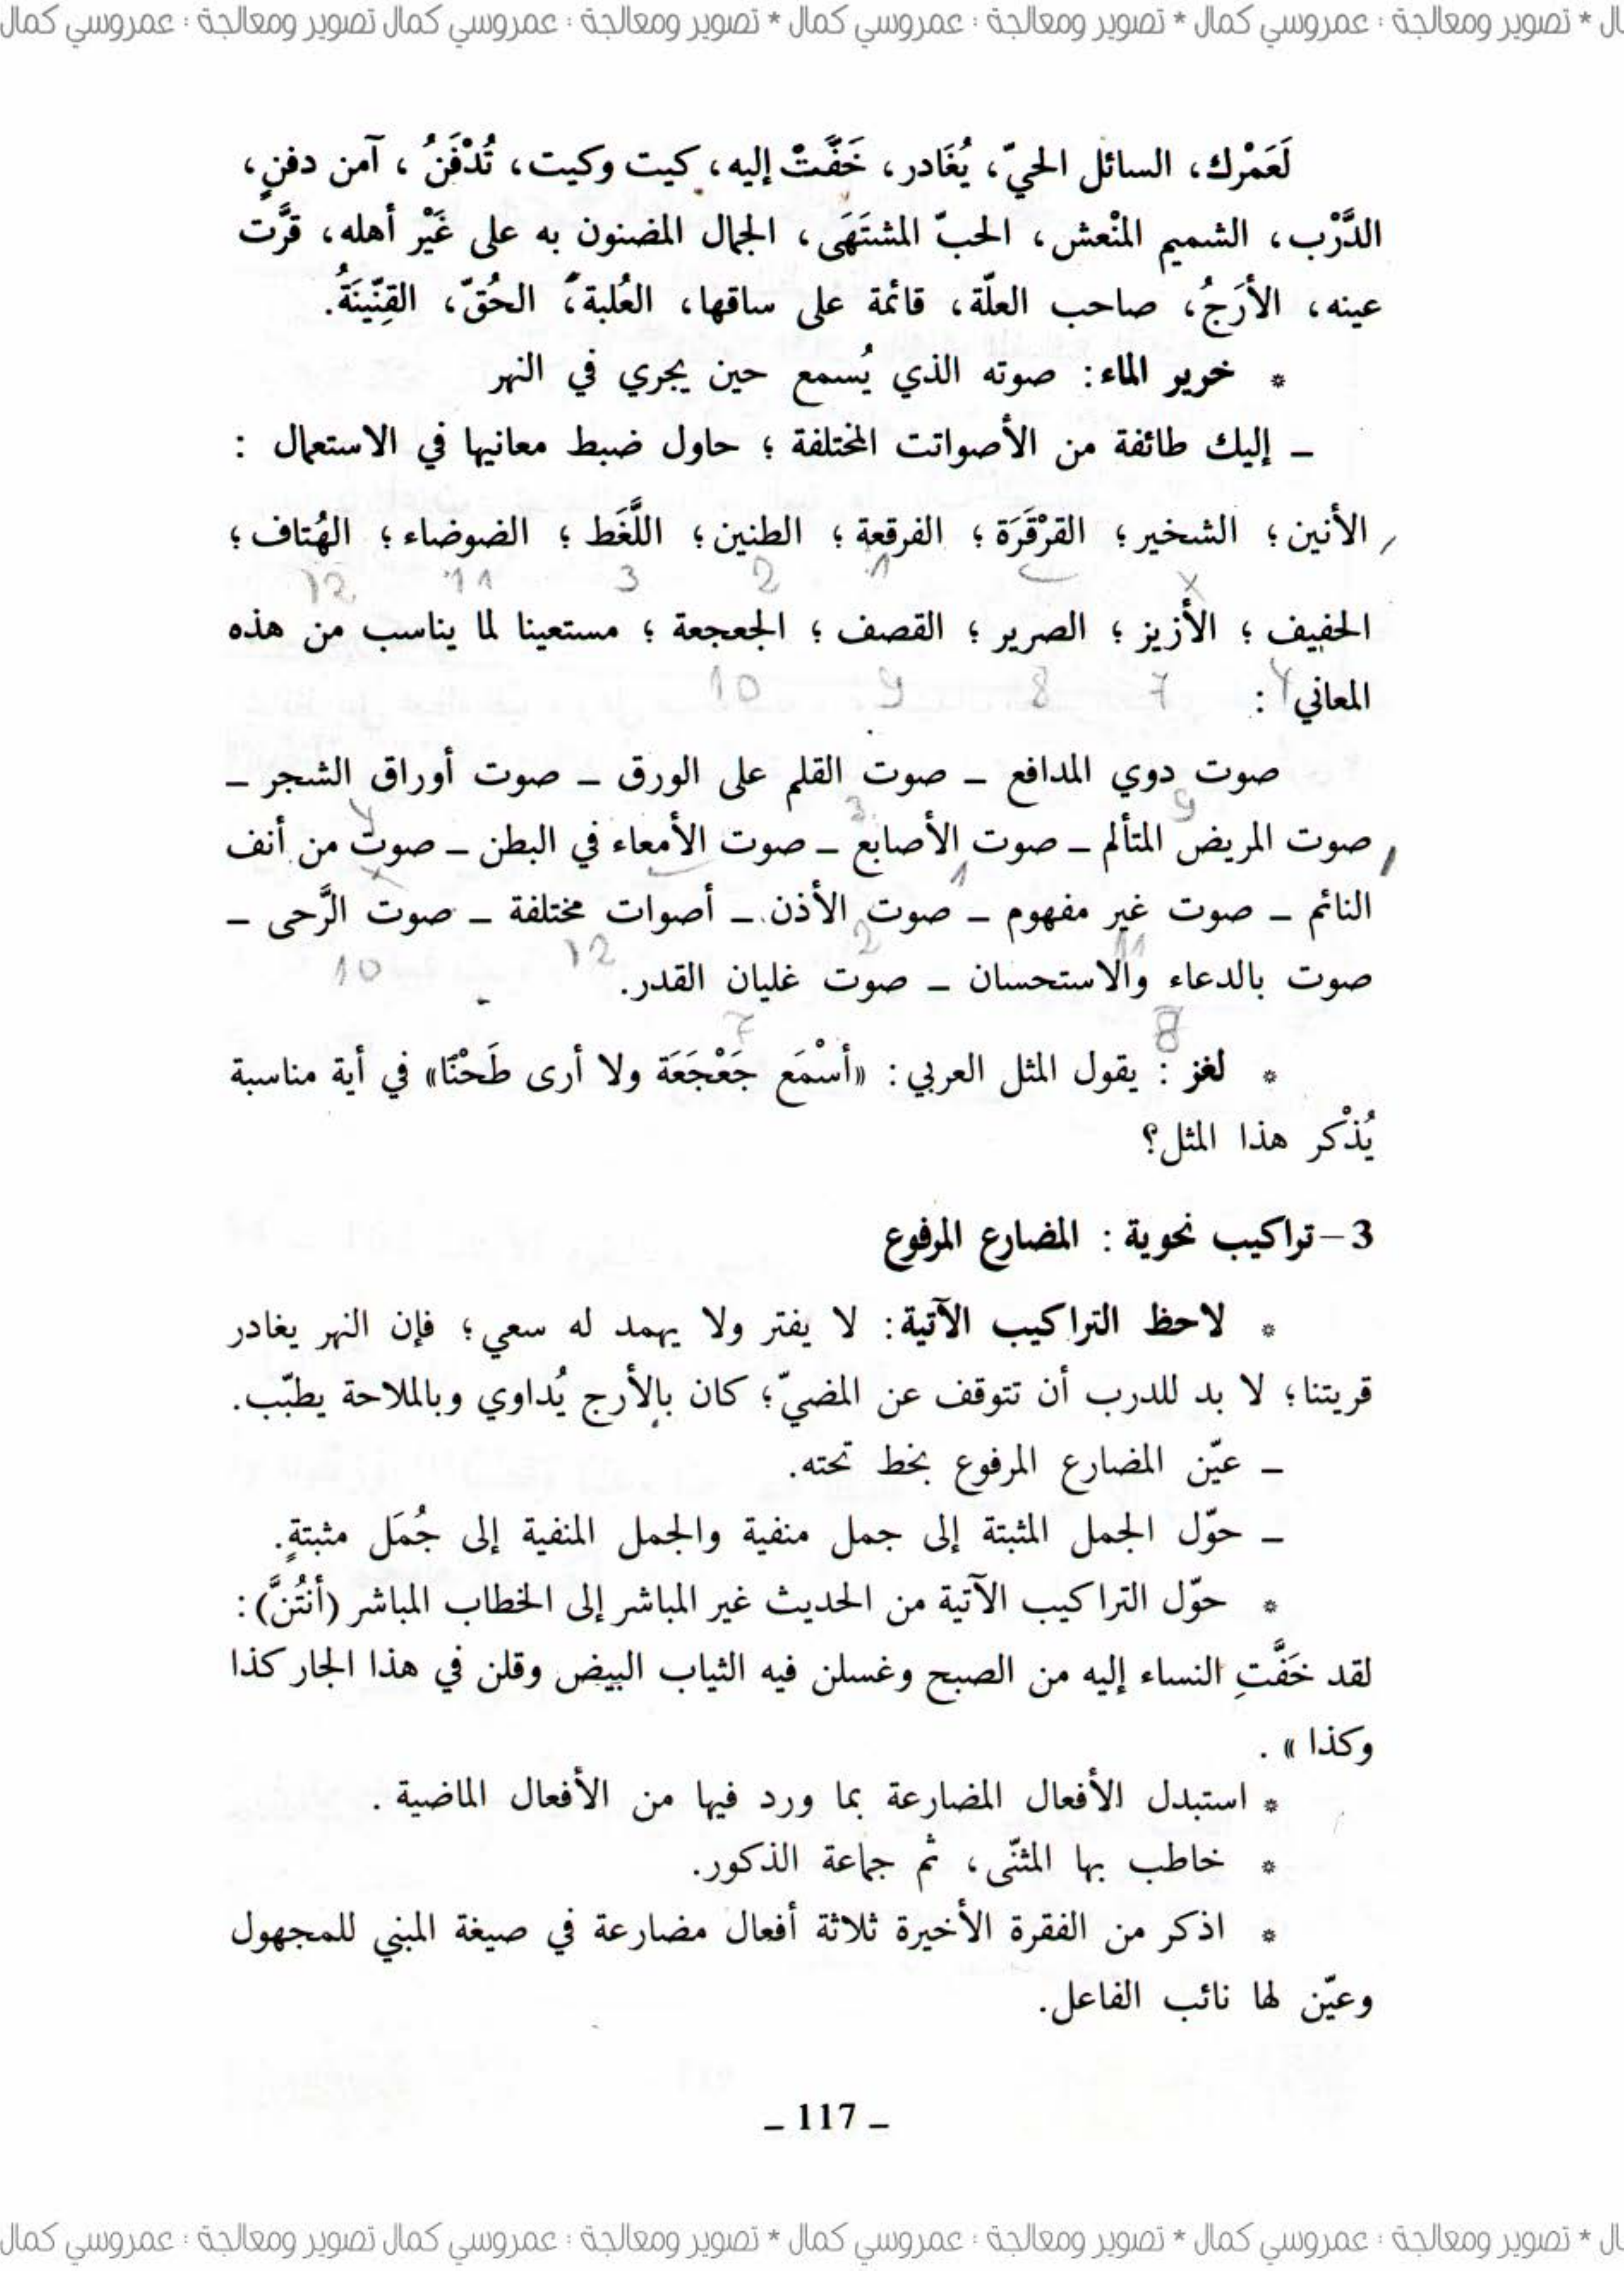 ال * تصوير ومعالجة : عمروسي كمال * تصوير ومعالجة : عمروسي كمال * تصوير ومعالجة : عمروسي كمال تصوير ومعالجة : عمروسي كمال
لَعَمْرك، السائل الحيّ، يُغَادر، خَفَّتْ إليه، كيت وكيت، تُدْفَنُ ، آمن دفنٍ،
الدَّرْب، الشميم المنْعش، الحبّ المشتَهَى، الجمال المضنون به على غَيْر أهله، قرَّت
عينه، الأرَجُ، صاحب العلّة، قائمة على ساقها، العُلبة، الحُقّ، القِنّينَةُ.
* خرير الماء: صوته الذي يُسمع حين يجري في النهر
– إليك طائفة من الأصواتت المختلفة ؛ حاول ضبط معانيها في الاستعمال :
الأنين؛ الشخير؛ القرْقَرَة؛ الفرقعة؛ الطنين؛ اللَّغَط؛ الضوضاء؛ الهُتاف؛
12 11 3 2 1 x
الحفيف ؛ الأزيز ؛ الصرير ؛ القصف ؛ الجعجعة ؛ مستعينا لما يناسب من هذه
10 9 8 7 4
المعاني :
صوت دوي المدافع – صوت القلم على الورق – صوت أوراق الشجر –
9 3 4
صوت المريض المتألم – صوت الأصابع – صوت الأمعاء في البطن – صوت من أنف
1 x
النائم – صوت غير مفهوم – صوت الأذن – أصوات مختلفة – صوت الرَّحى –
11 2 12 10
صوت بالدعاء والاستحسان – صوت غليان القدر.
8 7
* لغز : يقول المثل العربي: «أسْمَع جَعْجَعَة ولا أرى طَحْنًا» في أية مناسبة
يُذْكر هذا المثل؟
3–تراكيب نحوية : المضارع المرفوع
* لاحظ التراكيب الآتية: لا يفتر ولا يهمد له سعي؛ فإن النهر يغادر
قريتنا؛ لا بد للدرب أن تتوقف عن المضيّ؛ كان بالأرج يُداوي وبالملاحة يطبّب.
– عيّن المضارع المرفوع بخط تحته.
– حوّل الجمل المثبتة إلى جمل منفية والجمل المنفية إلى جُمَل مثبتةٍ.
* حوّل التراكيب الآتية من الحديث غير المباشر إلى الخطاب المباشر (أنتُنَّ):
لقد خَفَّتِ النساء إليه من الصبح وغسلن فيه الثياب البيض وقلن في هذا الجار كذا
وكذا » .
* استبدل الأفعال المضارعة بما ورد فيها من الأفعال الماضية .
* خاطب بها المثنّى، ثم جماعة الذكور.
* اذكر من الفقرة الأخيرة ثلاثة أفعال مضارعة في صيغة المبني للمجهول
وعيّن لها نائب الفاعل.
– 117 –
ال * تصوير ومعالجة : عمروسي كمال * تصوير ومعالجة : عمروسي كمال * تصوير ومعالجة : عمروسي كمال تصوير ومعالجة : عمروسي كمال